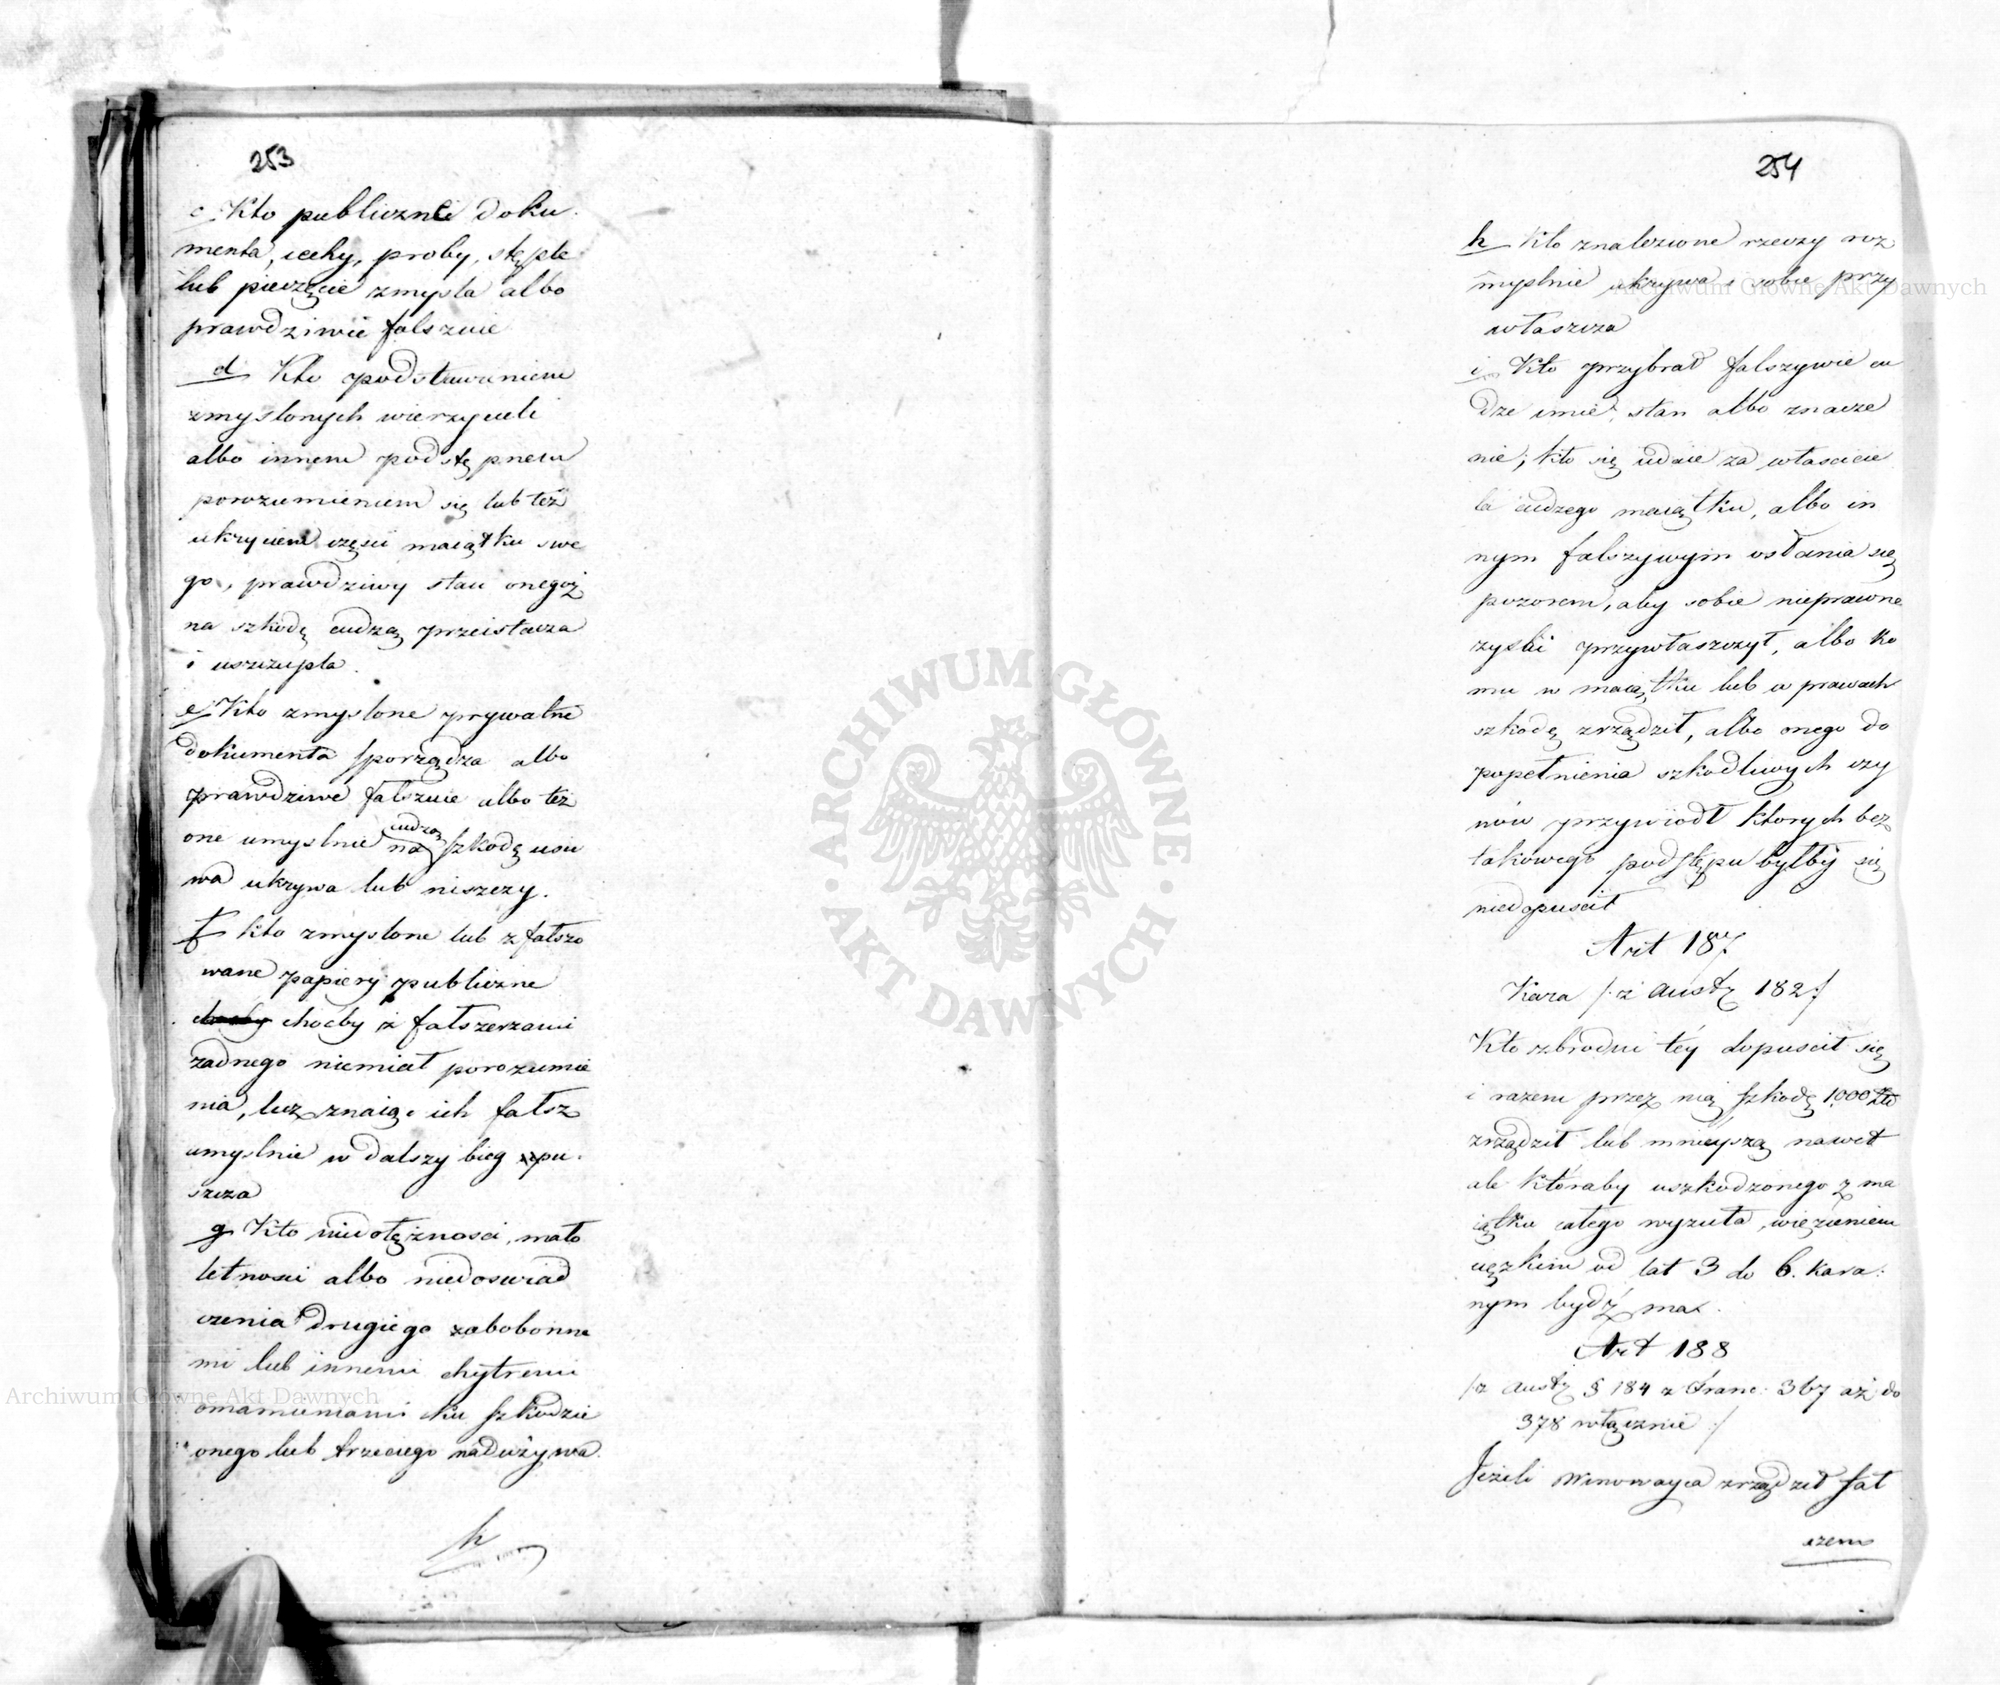 253
c Kto publiczne doku-
menta, cechy, proby, stęple
lub pieczęcie zmysla albo
prawdziwie falszuie
d Kto podstawieniem
zmyslonych wierzycieli
albo innem podstępnem
porozumieniem się lub też
ukryciem części maiątku swe
go, prawdziwy stan onegoż
na szkodę cudzą przeistacza
i uszczupla.
e Kto zmyslone prywatne
dokumenta sporządza albo
prawdziwe falszuie albo też
one umyslnie na cudzą szkodę usu
wa ukrywa lub niszczy.
f kto zmyslone lub zfałszo
wane papiery publiczne
choćby choćby z fałszerzami
żadnego niemiał porozumie
nia, lecz znaiąc ich fałsz
umyslnie w dalszy bieg wpu-
szcza
g Kto niedołężnosci, mało
letnosci albo niedoswiad
czenia drugiego zabobonne
mi lub innemi chytremi
omamieniami ku szkodzie
onego lub trzeciego nadużywa.
h
254
h Kto znalezione rzeczy roz
myslnie ukrywa i sobie przy
właszcza
i Kto przybrał falszywie cu
dze imie, stan albo znacze
nie; kto się udaie za własicie
la cudzego maiątku, albo in
nym falszywym osłania się
pozorem, aby sobie nieprawne
zyski przywłaszczył, albo ko
mu w maiątku lub w prawach
szkodę zrządził, albo onego do
popełnienia szkodliwych czy
nów przywiodł ktorych bez
takowego podstępu byłby się
niedopuscił
Art 187
Kara /: z Austr 182 :/
Kto zbrodni téy dopuscił się
i razem przez nią szkodę 1000 Złł
zrządził lub mnieyszą nawet
ale któraby uszkodzonego z ma
iątku całego wyzuła, więzieniem
ciężkim od lat 3 do 6. kara-
nym bydź ma.
Art 188
/: z Austr § 184 z Franc: 367 aż do
378 włącznie :/
Jeżeli Winowayca zrządził fał